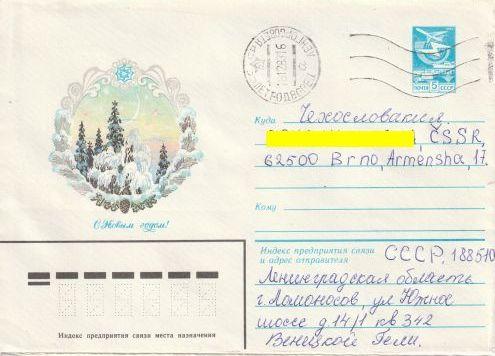 ПОЧТА 5 СССР
ПЕТРОДВОРЕЦ
Куда Чехословакия,
ČSSR,
62500 Brno, Armensha, 17.
Кому
С Новым годом!
Индекс предприятия связи
и адрес отправителя
СССР, 188510
Ленинградская область
г. Ломоносов ул Южное
шоссе д. 14/1 кв 342
Венецкой Гели.
Индекс предприятия связи места назначения